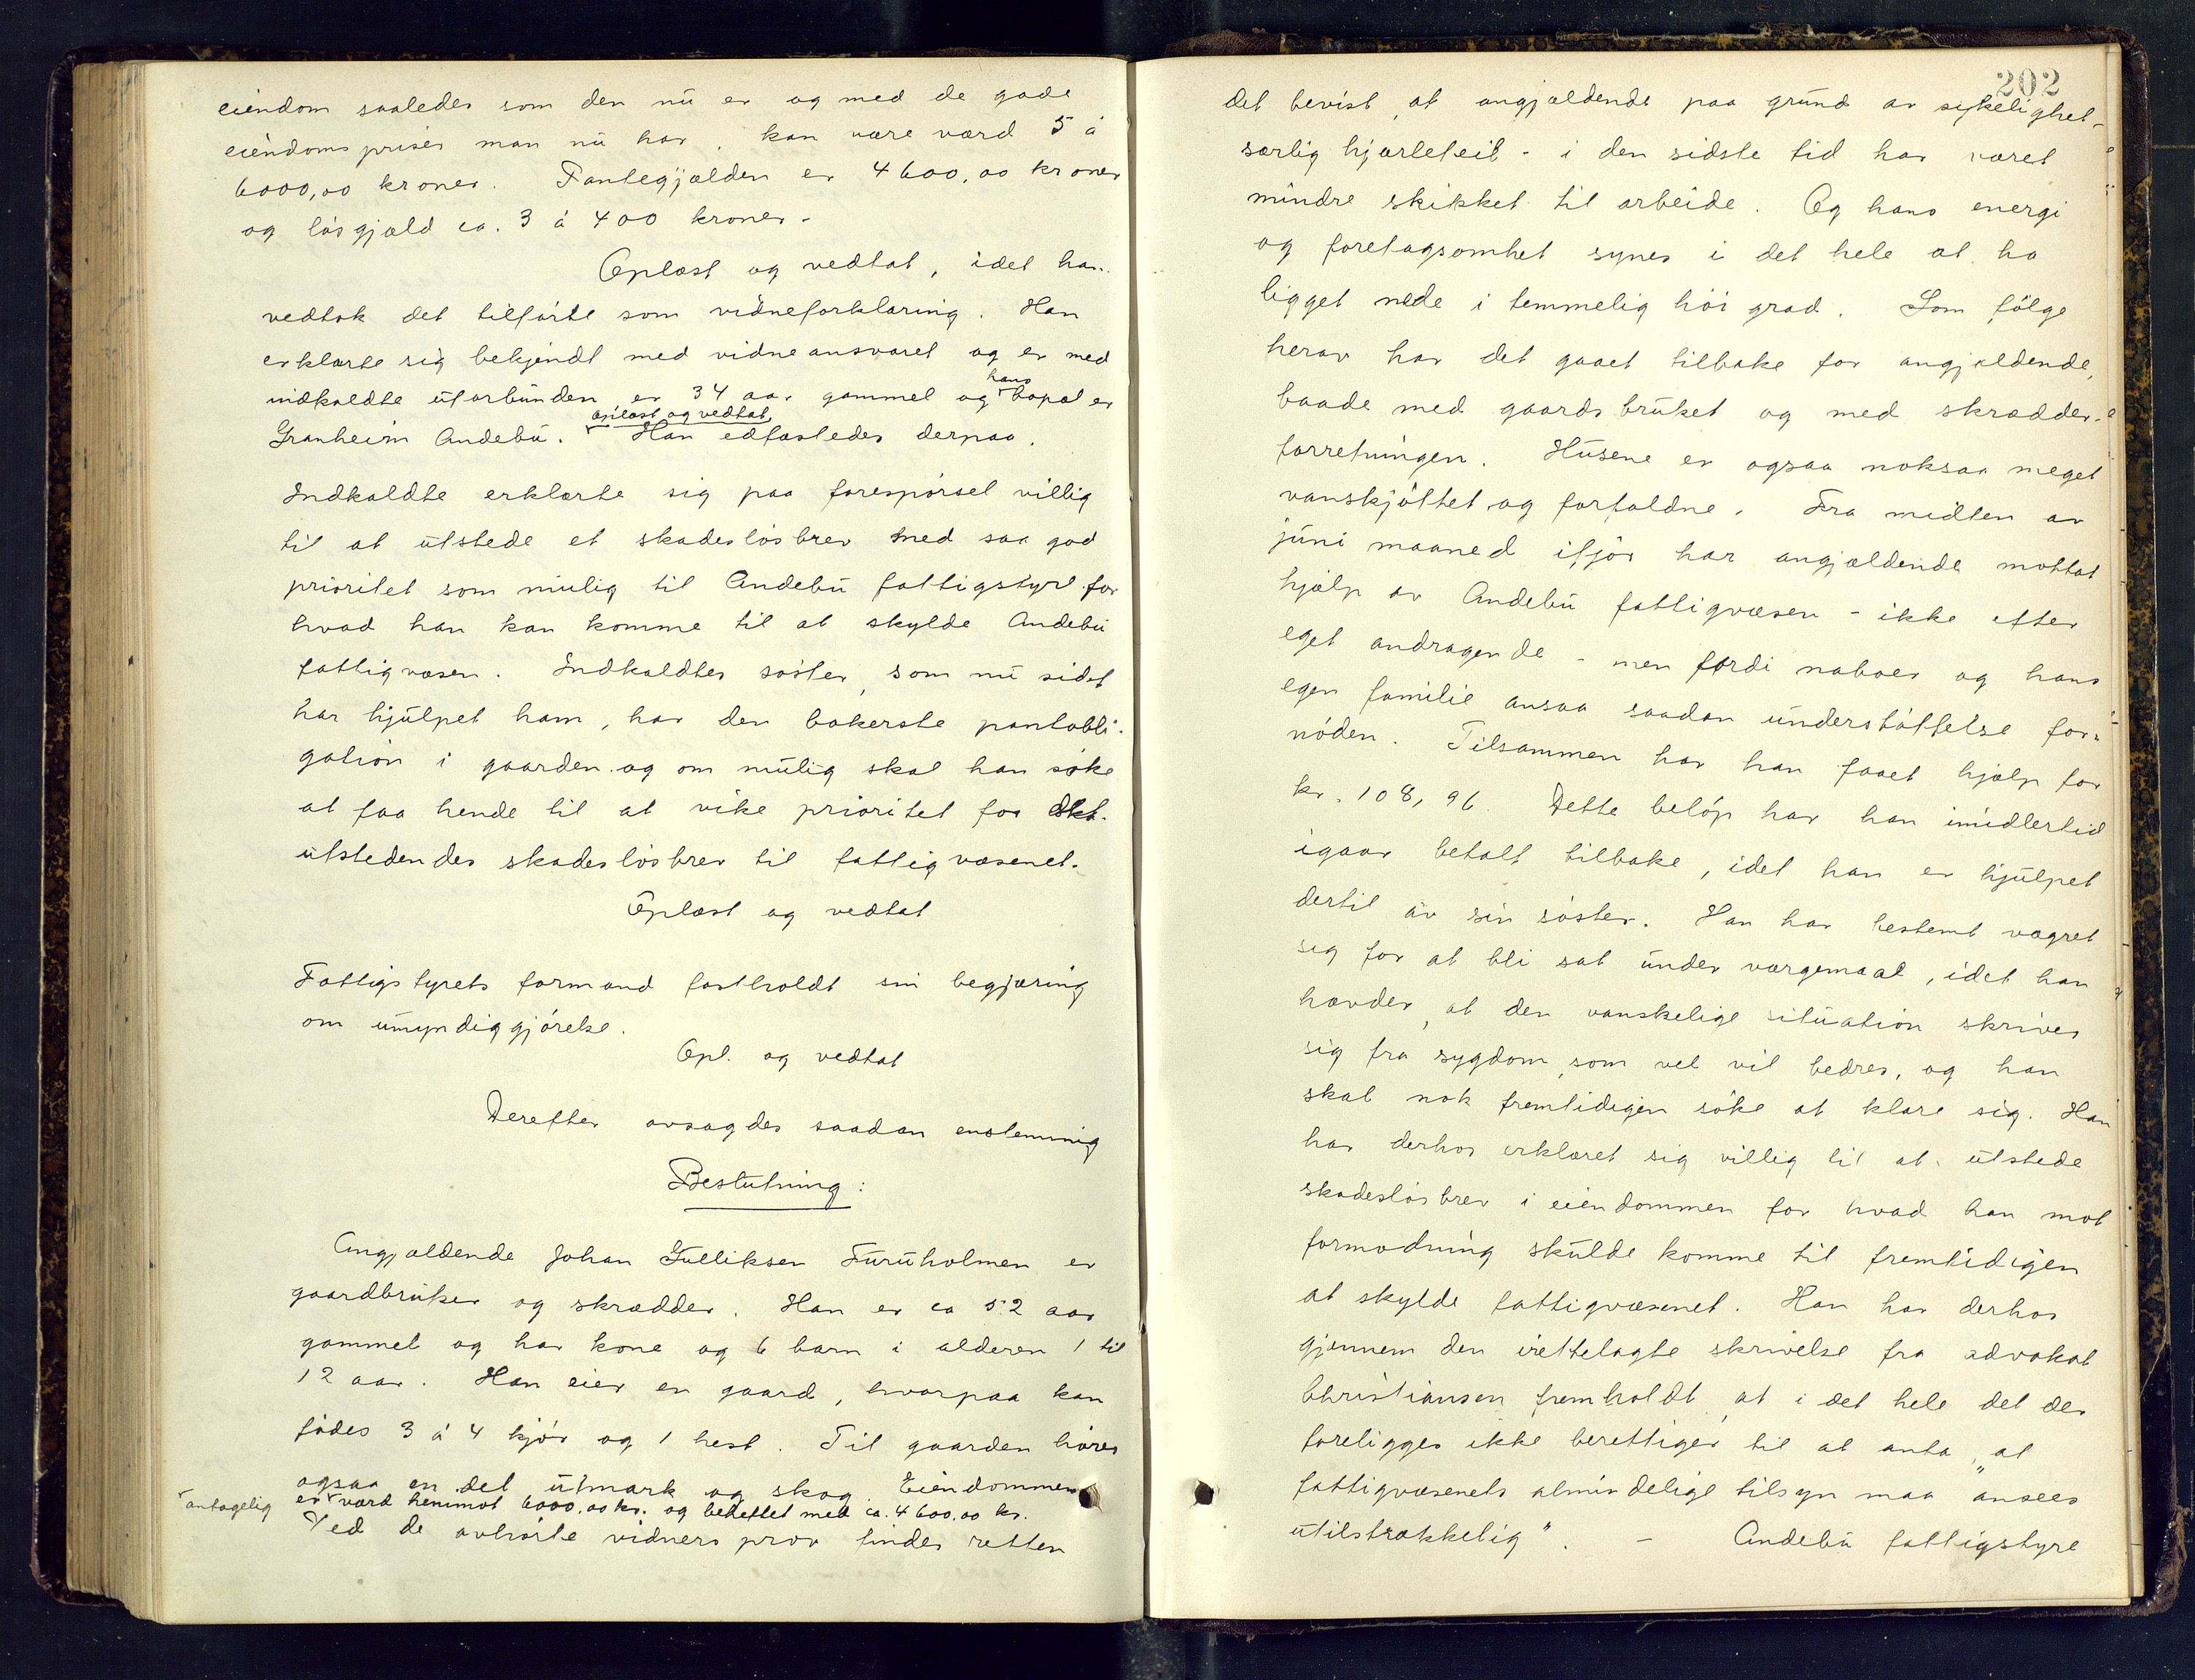 eiendom saaledes som den nu er og med de gode
eiendomspriser man nu har, kan være værd 5 á
6000,00 kroner. Pantegjælden er 4600,00 kroner
og løsgjæld ca. 3 á 400 kroner.
Oplæst og vedtat, idet han
vedtok det tilførte som vidneforklaring. Han
erklærte sig bekjendt med vidneansvaret og er med
indkaldte uforbunden er 34 aar gammel og hans bopæl er
Granheim Andebu. oplæst og vedtat, Han edfæstedes derpaa.
Indkaldte erklærte sig paa forespørsel villig
til at utstede et skadesløsbrev med saa god
prioritet som mulig til Andebu fattigstyre for
hvad han kan komme til at skylde Andebu
fattigvæsen. Indkaldtes søster, som nu sidst
har hjulpet ham, har den bakerste pantobli-
gation i gaarden og om mulig skal han søke
at faa hende til at vike prioritet for
utstedendes skadesløsbrev til fattigvæsenet.
Oplæst og vedtat
Fattigstyrets formand fastholdt sin begjæring
om umyndiggjørelse.
Opl. og vedtat
Derefter avsagdes saadan enstemmig
Beslutning:
Angjældende Johan Gulliksen Furuholmen er
gaardbruker og skrædder. Han er ca 52 aar
gammel og har kone og 6 barn i alderen 1 til
12 aar. Han eier en gaard, hvorpaa kan
fødes 3 á 4 kjør og 1 hest. Til gaarden hører
ogsaa en del utmark og skog. Eiendommen
er antagelig værd henimot 6000,00 kr. og beheftet med ca. 4600,00 kr.
Ved de avhørte vidners prov finder retten
202
det bevist, at angjældende paa grund av sykelighet -
særlig hjertefeil - i den sidste tid har været
mindre skikket til arbeide. Og hans energi
og foretagsomhet synes i det hele at ha
ligget nede i temmelig høi grad. Som følge
herav har det gaaet tilbake for angjældende,
baade med gaardsbruket og med skrædder-
forretningen. Husene er ogsaa noksaa meget
vanskjøttet og forfaldne. Fra midten av
juni maaned ifjor har angjældende mottat
hjælp av Andebu fattigvæsen - ikke efter
eget andragende - men fordi naboer og hans
egen familie ansaa saadan understøttelse for-
nøden. Tilsammen har han faaet hjælp for
kr. 108,96. Dette beløp har han imidlertid
igaar betalt tilbake, idet han er hjulpet
dertil av sin søster. Han har bestemt vægret
sig for at bli sat under værgemaal, idet han
hævder, at den vanskelige situation skriver
sig fra sygdom, som vel vil bedres, og han
skal nok fremtidigen søke at klare sig. Han
har derhos erklæret sig villig til at utstede
skadesløsbrev i eiendommen for hvad han mot
formodning skulde komme til fremtidigen
at skylde fattigvæsenet. Han har derhos
gjennem den irettelagte skrivelse fra advokat
Christiansen fremholdt, at i det hele det der
foreligger ikke berettiger til at anta, at
fattigvæsenets almindelige tilsyn maa "ansees
utilstrækkelig". - Andebu fattigstyre